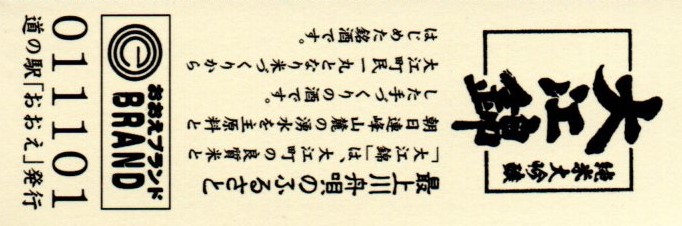 純米大吟醸
大江錦
最上川舟唄のふるさと
「大江錦」は、大江町の良質米と
朝日連峰山麓の湧水を主原料と
した手づくりの酒です。
大江町民一丸となり米づくりから
はじめた銘酒です。
おおえブランド
BRAND
011101
道の駅「おおえ」発行